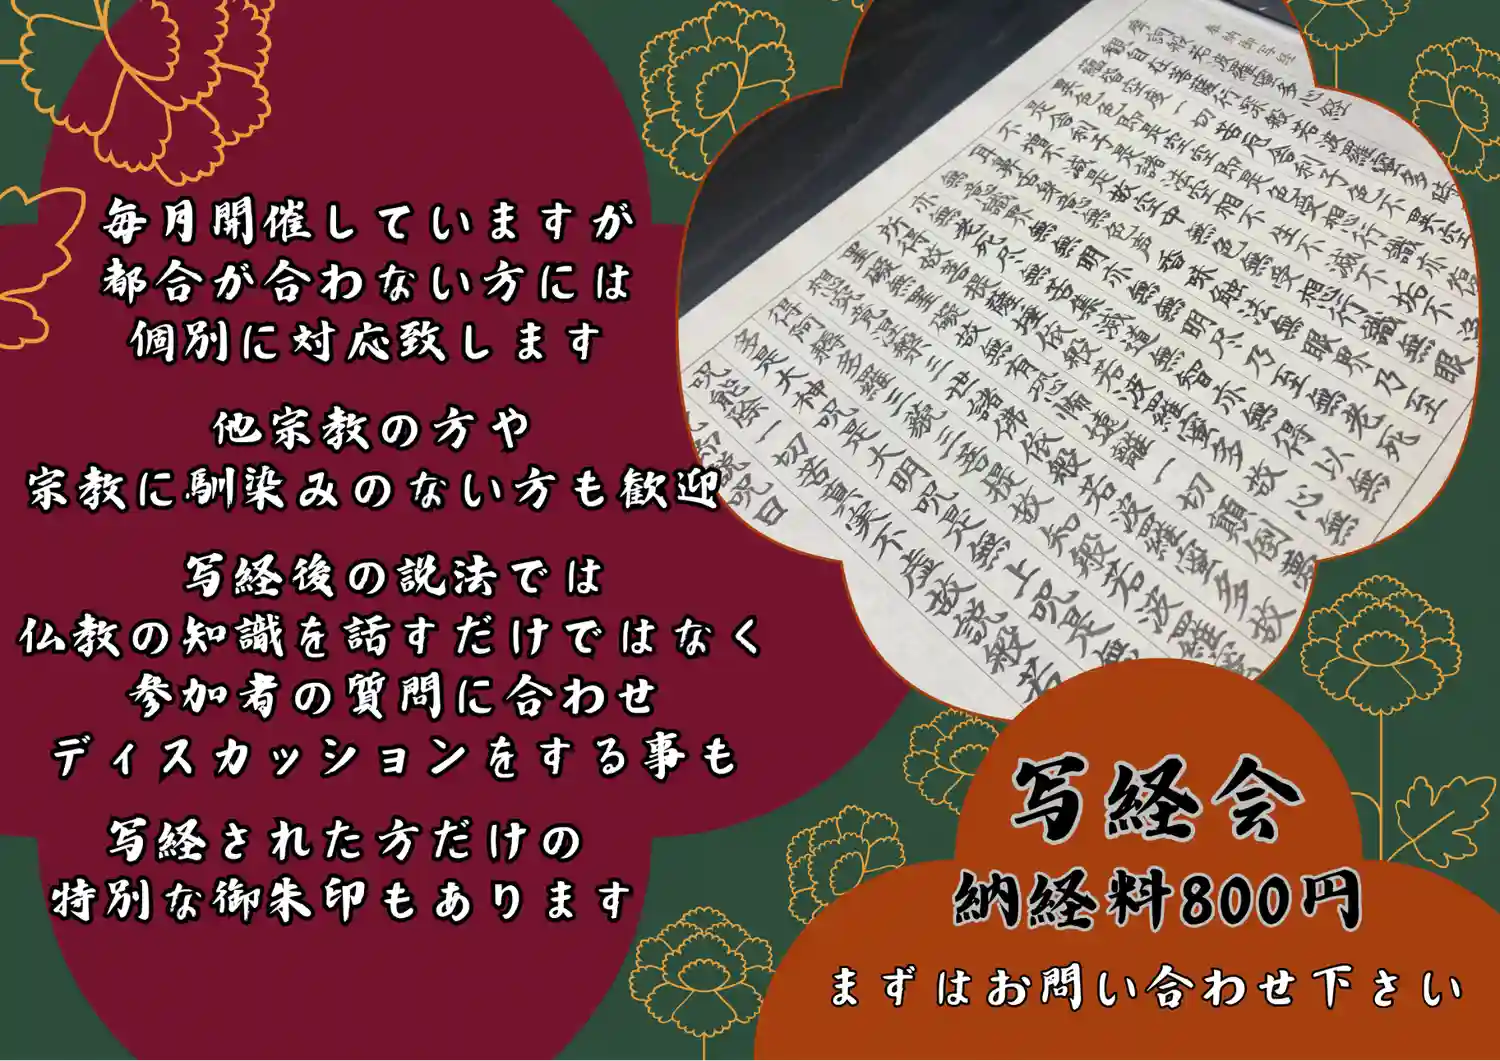 毎月開催していますが
都合が合わない方には
個別に対応致します
他宗教の方や
宗教に馴染みのない方も歓迎
写経後の説法では
仏教の知識を話すだけではなく
参加者の質問に合わせ
ディスカッションをする事も
写経された方だけの
特別な御朱印もあります
摩訶般若波羅蜜多心経
観自在菩薩行深般若波羅蜜多時
蘊皆空度一切苦厄舎利子色不異空
異色色即是空空即是色受想行識亦
是舎利子是諸法空相不生不滅不垢不
不増不減是故空中無色無受想行識無眼
耳鼻舌
無意識界無無明亦無無明尽乃至無老死
亦無老死尽無苦集滅道無智亦無得以無
所得故菩提薩埵依般若波羅蜜多故心無
罣礙無罣礙故無有恐怖遠離一切顛倒夢
想究竟涅槃三世諸仏依般若波羅蜜多故
得阿耨多羅三藐三菩提故知般若波羅蜜
多是大神呪是大明呪是無上呪是無
呪能除一切苦真実不虚故説般若
呪曰
写経会
納経料800円
まずはお問い合わせ下さい